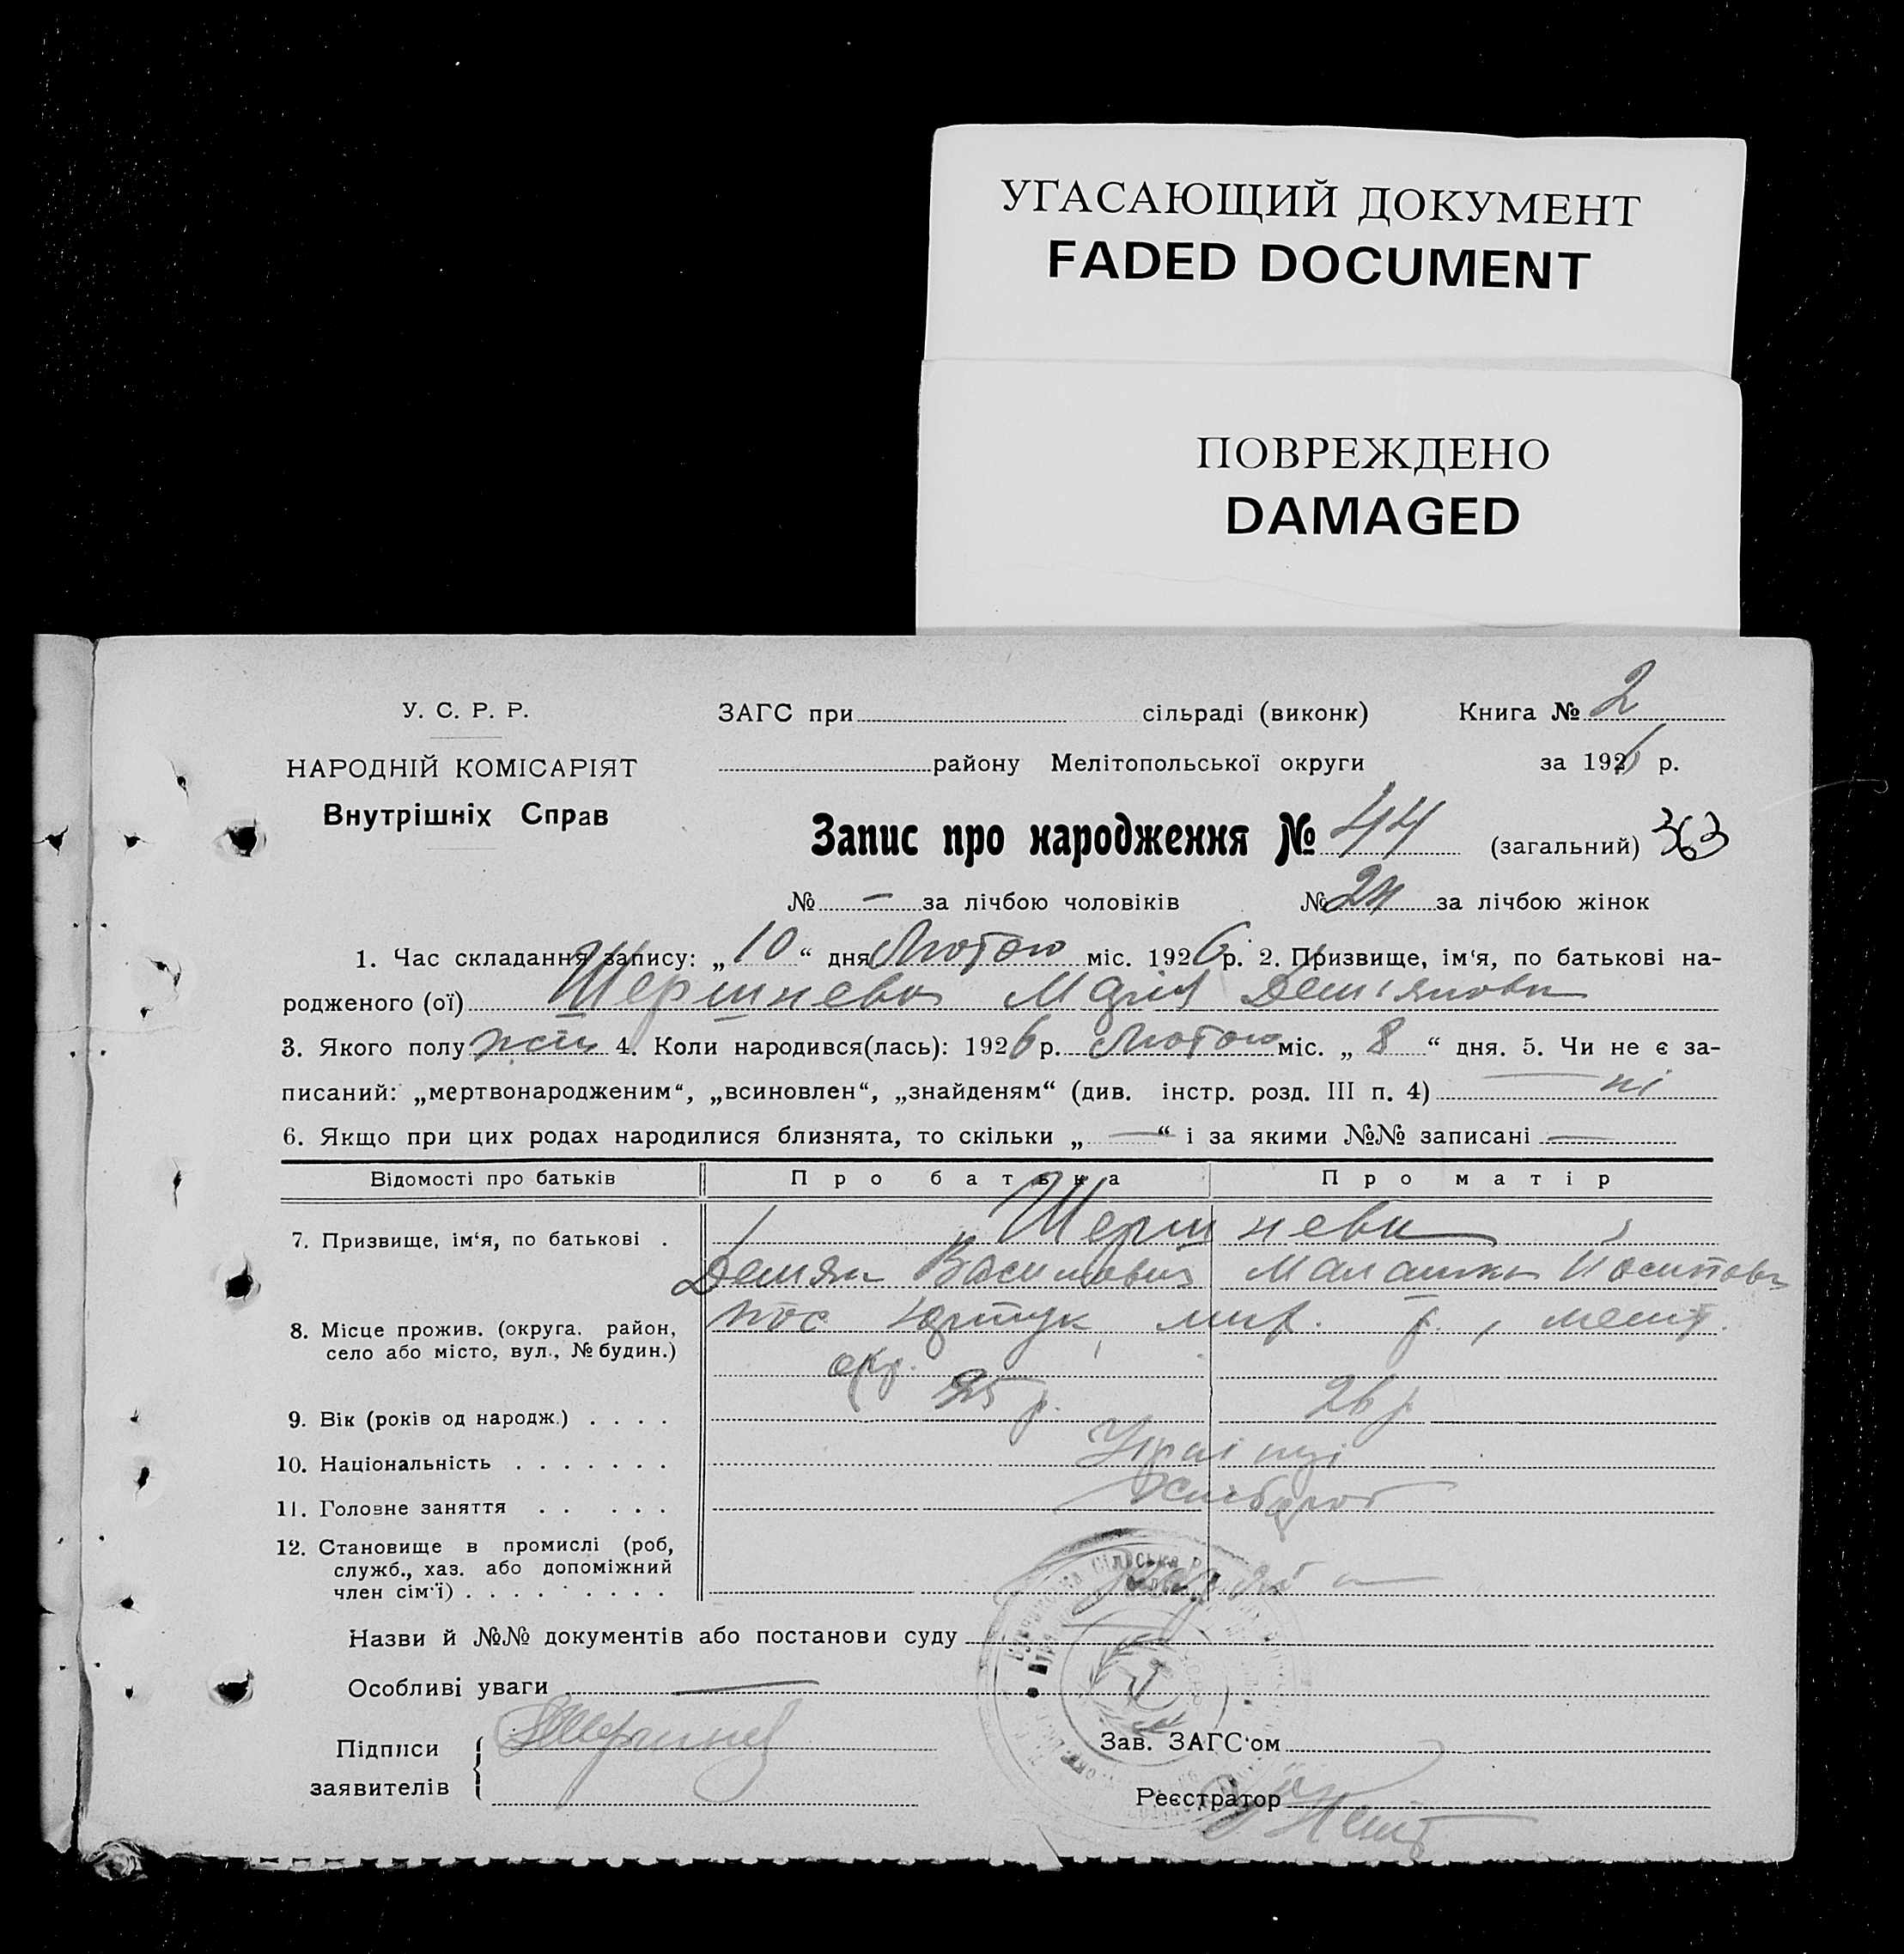 УГАСАЮЩИЙ ДОКУМЕНТ
FADED DOCUMENT
ПОВРЕЖДЕНО
DAMAGED
У. С. Р. Р.
НАРОДНІЙ КОМІСАРІЯТ
Внутрішніх Справ
ЗАГС при сільраді (виконк) Книга № 2
району Мелітопольської округи за 1926 р.
Запис про народження № 44 (загальний) 363
№ — за лічбою чоловіків № 24 за лічбою жінок
1. Час складання запису: „10“ дня Лютого міс. 1926 р. 2. Призвище, ім‘я, по батькові на-
родженого (ої) Шершнева Марія Демянова
3. Якого полу жін 4. Коли народився(лась): 1926 р. Лютого міс. „8“ дня. 5. Чи не є за-
писаний: „мертвонародженим“, „всиновлен“, „знайденям“ (див. інстр. розд. III п. 4) ні
6. Якщо при цих родах народилися близнята, то скільки „—“ і за якими №№ записані —
Відомості про батьків Про батька Про матір
7. Призвище, ім‘я, по батькові . Шершневи
Демян Васильович Маланка Йосипова
8. Місце прожив. (округа, район, село або місто, вул., № будин.) пос р., меліт.
окр.
9. Вік (років од народж.) . . . . 25 р. 26 р
10. Національність . . . . . . . Українці
11. Головне заняття . . . . . Хлібороб
12. Становище в промислі (роб,
служб., хаз. або допоміжний
член сім‘ї) . . . . . . . . .
Назви й №№ документів або постанови суду
Особливі уваги —
Підписи
заявителів
Зав. ЗАГС‘ом
Реєстратор